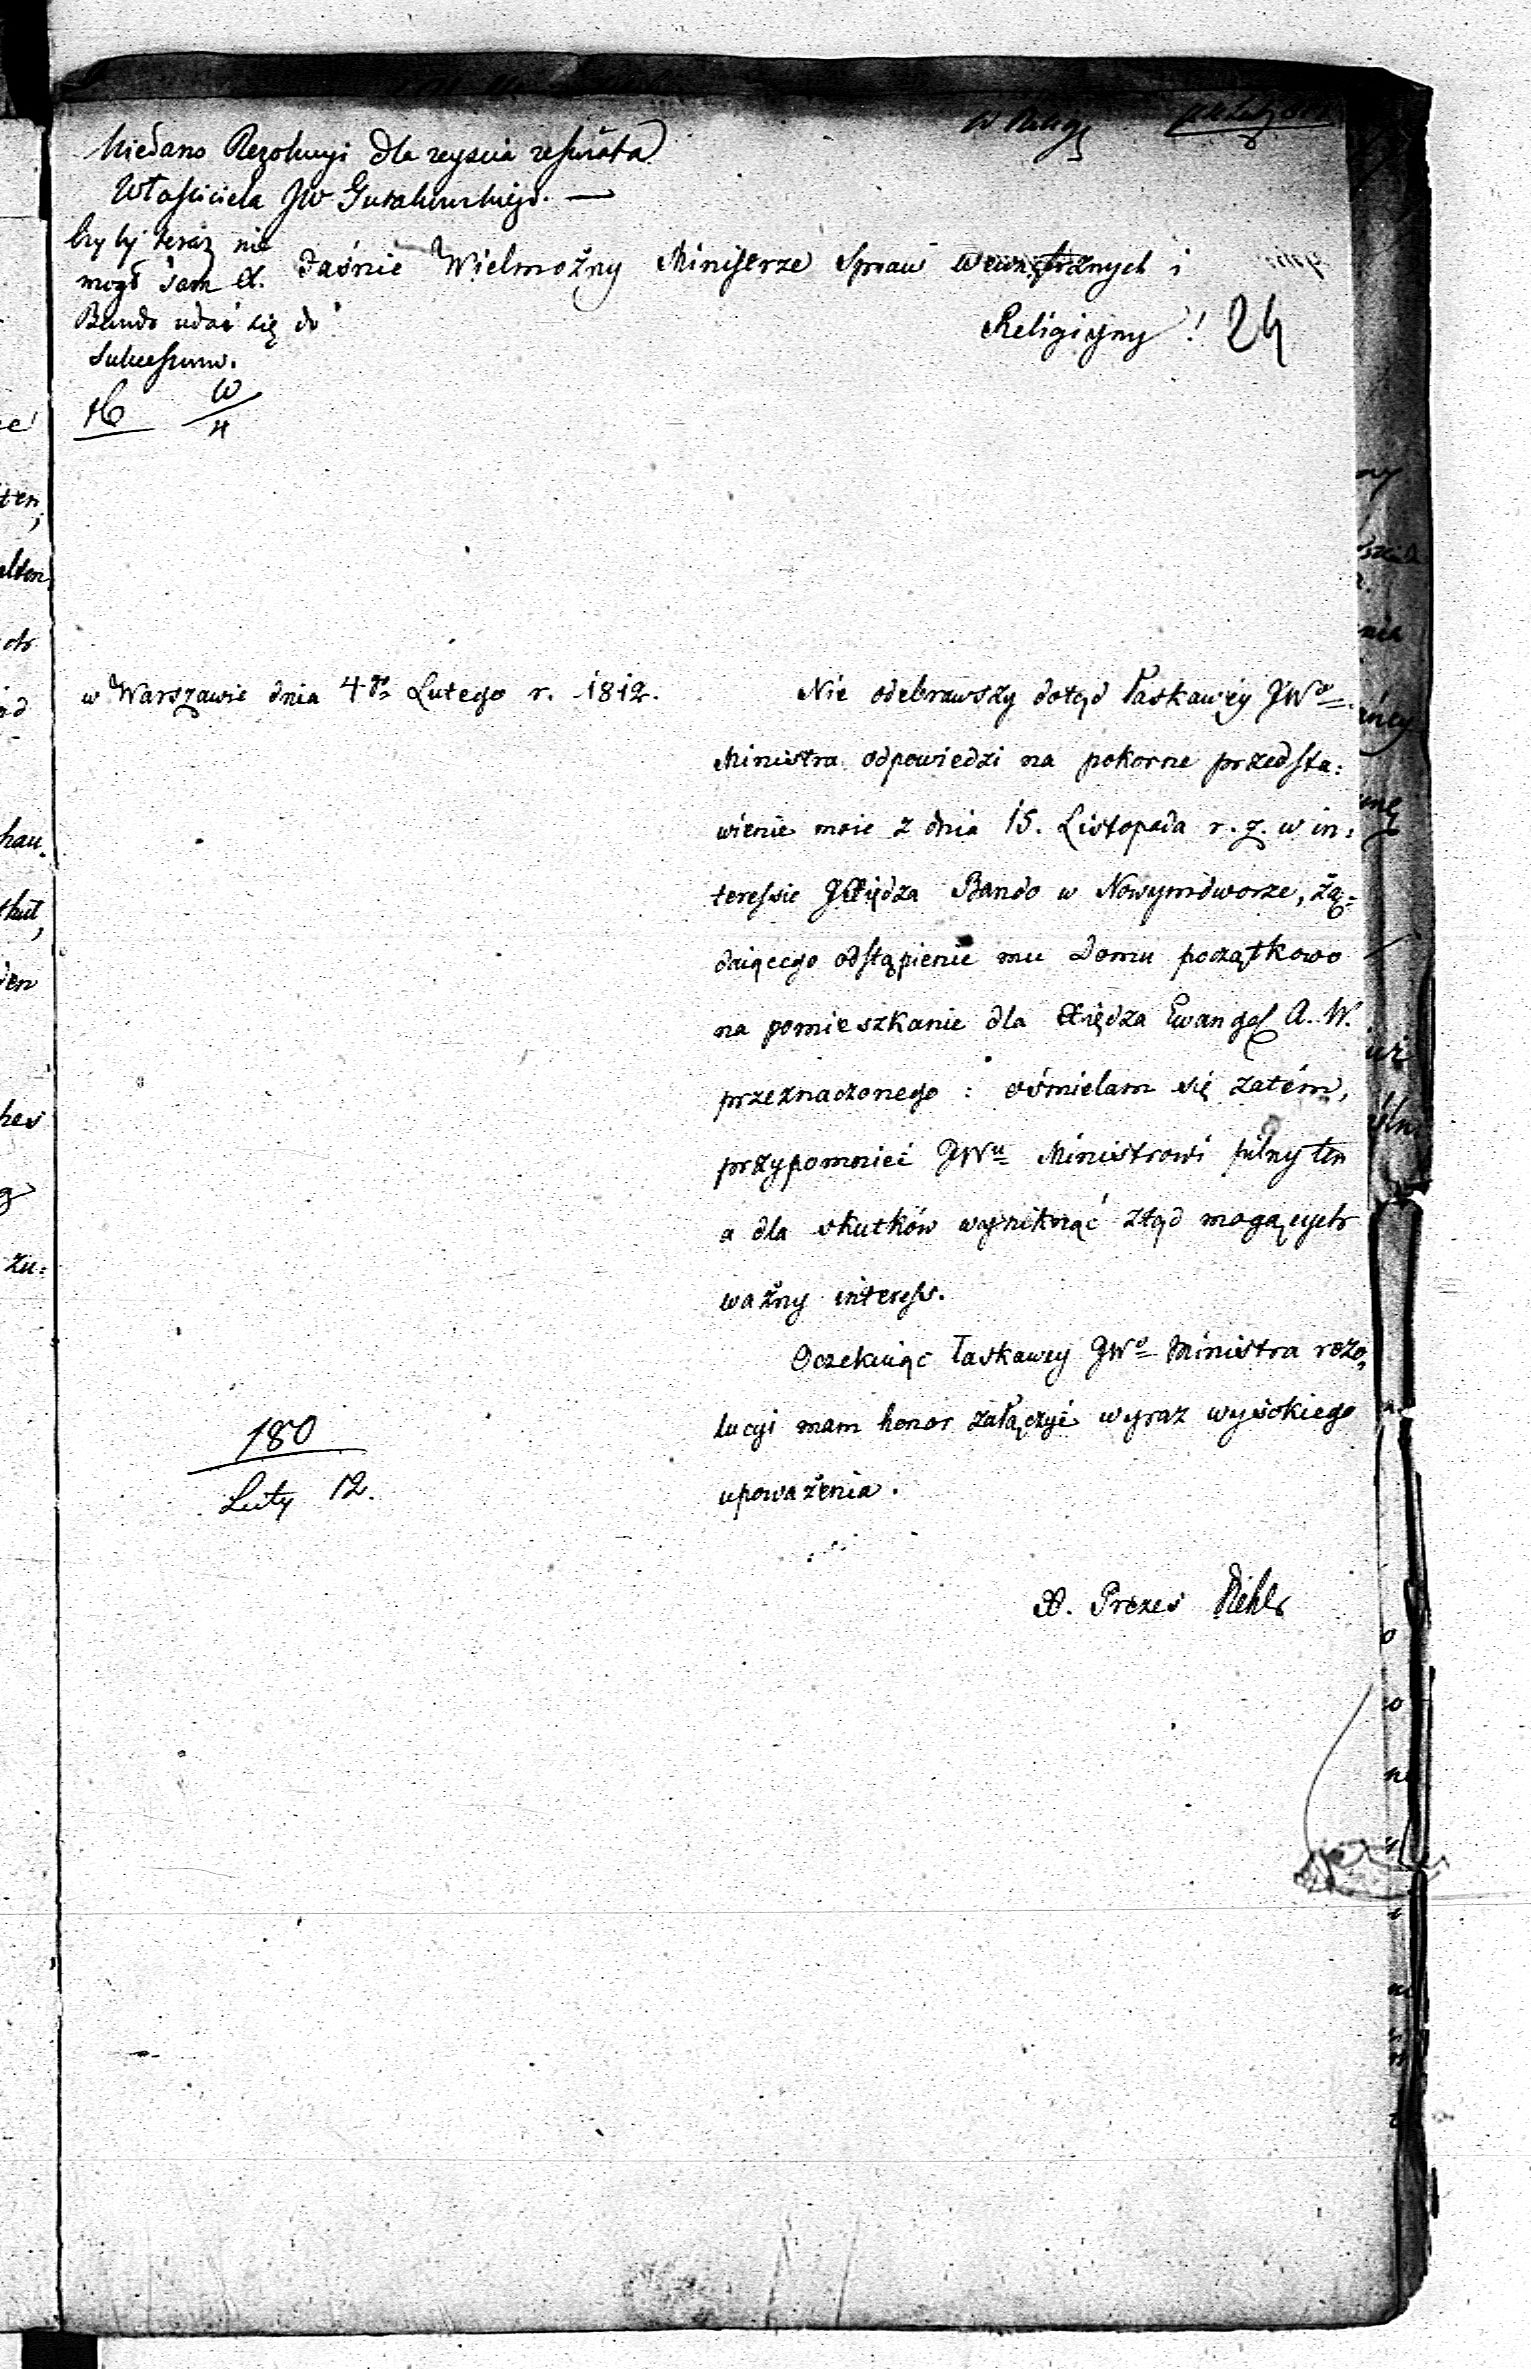 W Relig
Niedano Rezolucyi dla zeyscia ze świata
Właściciela JW Gutakowskiego. —
czyby teraz nie
mogł sam X.
Bando udać się do
Sukcessorów.
W
4
Jaśnie Wielmożny Ministrze Spraw wewnętrznych i
Religiyny! 24
w Warszawie dnia 4go Lutego r. 1812.
Nie odebrawszy dotąd łaskawey JWo
Ministra odpowiedzi na pokorne przedsta:
wienie moie z dnia 15. Listopada r. z. w in:
teressie Xiędza Bando w Nowymdworze, żą:
daiącego odstąpienie mu Domu początkowo
na pomieszkanie dla Xiędza Ewangel A. W.
przeznaczonego: ośmielam się zatém,
przypomnieć JWu Ministrowi pilny ten
a dla skutków wyniknąć ztąd mogących
ważny interess.
Oczekuiąc łaskawey JWo Ministra rezo,
lucyi mam honor załączyć wyraz wysokiego
upoważenia.
180
Luty 12.
X. Prezes Diehl